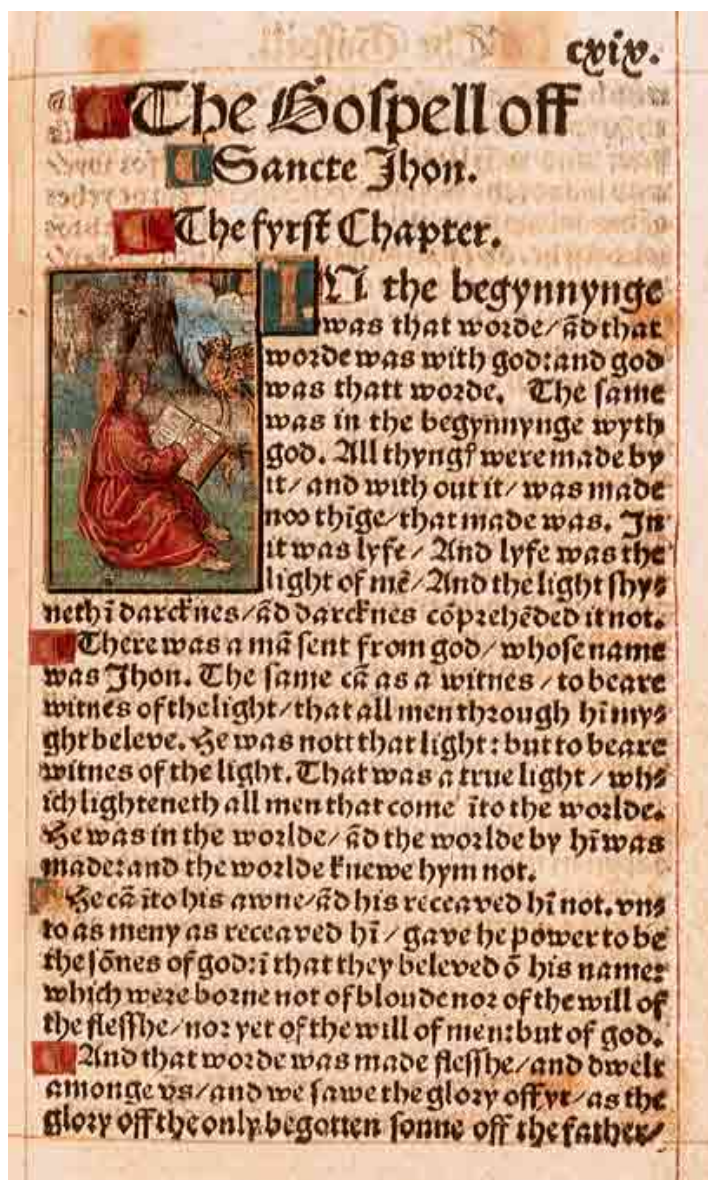 cxix.
The Gospell off
Sancte Jhon.
The fyrst Chapter.
IN the begynnynge
was that worde/ ãd that
worde was with god: and god
was thatt worde. The same
was in the begynnynge wyth
god. All thyngꝭ were made by
it/ and with out it/ was made
noo thĩge/ that made was. In
it was lyfe/ And lyfe was the
light of mẽ/ And the light shy⸗
neth ĩ darcknes/ ãd darcknes cõprehẽded it not.
There was a mã sent from god/ whose name
was Jhon. The same cã as a witnes/ to beare
witnes of the light/ that all men through hĩ my⸗
ght beleve. He was nott that light: but to beare
witnes of the light. That was a true light/ whi⸗
ich lighteneth all men that come ĩto the worlde.
He was in the worlde/ ãd the worlde by hĩ was
made: and the worlde knewe hym not.
He cã ĩto his awne/ ãd his receaved hĩ not. vn⸗
to as meny as receaved hĩ/ gave he power to be
the sõnes of god: ĩ that they beleved õ his name:
which were borne not of bloude nor of the will of
the flesshe/ nor yet of the will of men: but of god.
And that worde was made flesshe/ and dwelt
amonge vs/ and we sawe the glory off yt/ as the
glory off the only begotten sonne off the father/